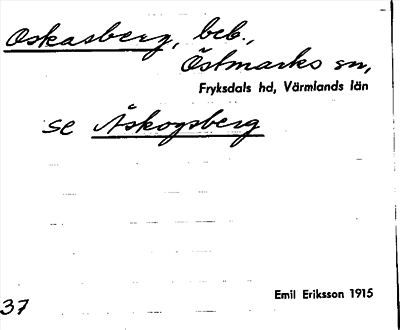 Oskasberg, beb.,
Östmarks sn,
Fryksdals hd, Värmlands län
se Åskogsberg
Emil Eriksson 1915
37